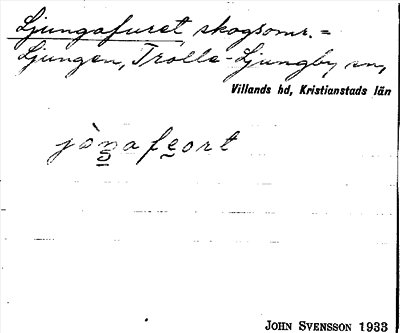 Ljungafuret skogsomr. =
Ljungen, Trolle-Ljungby sn,
Villands hd, Kristianstads län
jònafeort
5
JOHN SVENSSON 1933